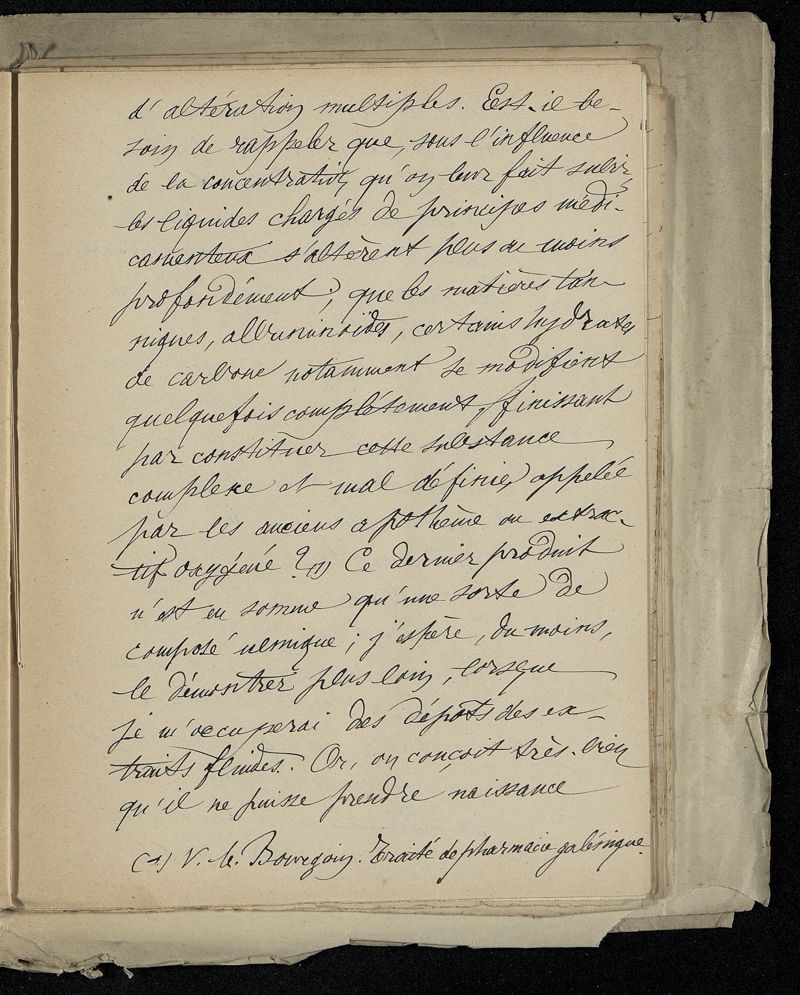 d'altération multiples. Est-il be-
soin de rappeler que, sous l'influence
de la concentration qu'on leur fait subir,
les liquides chargés de principes médi-
camenteux s'altèrent plus ou moins
profondément; que les matières tan-
niques, albuminoïdes, certains hydrates
de carbone notamment se modifient
quelquefois complètement, finissant
par constituer cette substance
complexe et mal définie, appelée
par les anciens apothème ou extrac-
tif oxygéné ?(1) Ce dernier produit
n'est en somme qu'une sorte de
composé ulmique; j'espère, du moins,
le démontrer plus loin, lorsque
je m'occuperai des dépôts des ex-
traits fluides. Or, on conçoit très-bien
qu'il ne puisse prendre naissance
(1) V. le Bourgoin. Traité de pharmacie galénique.